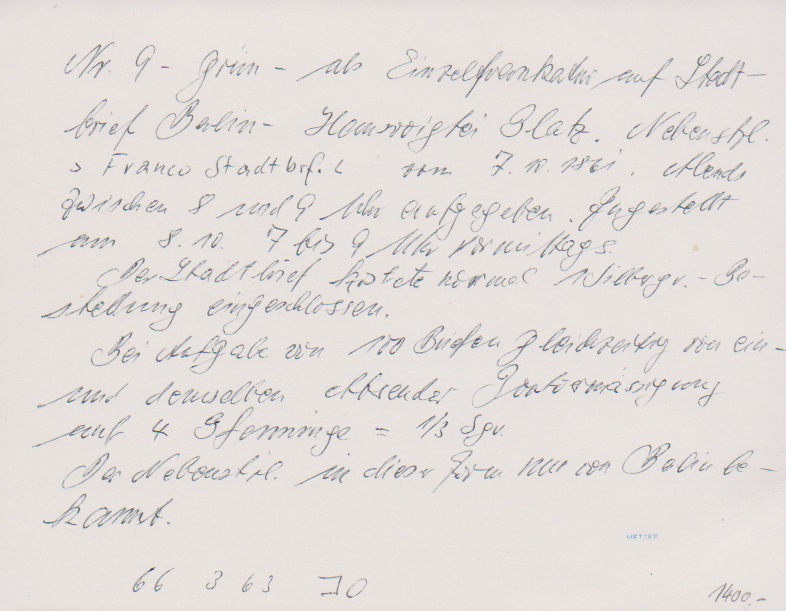 Nr. 9 - grün - als Einzelfrankatur auf Stadt-
brief Berlin - Hausvoigtei Platz. Nebenstpl.
> Franco Stadtbrf. < vom 7.10.1861. Abends
zwischen 8 und 9 Uhr aufgegeben. Zugestellt
am 8.10. 7 bis 9 Uhr vormittags.
Der Stadtbrief kostete normal 1 Silbergr. - Be-
stellung eingeschlossen.
Bei Aufgabe von 100 Briefen gleichzeitig von ein-
und demselben Absender Portoermässigung
auf 4 Pfenninge = 1/3 Sgr.
Der Nebenstpl. in dieser Form nur von Berlin be-
kannt.
METZER
66 3 63 70
1400.-